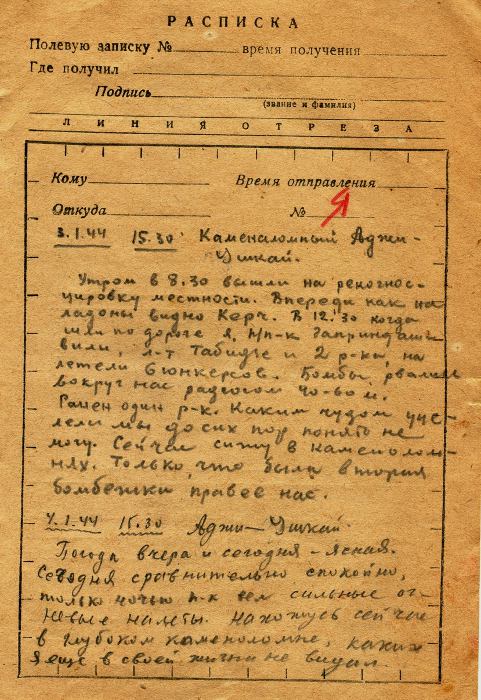 РАСПИСКА
Полевую записку № время получения
Где получил
Подпись
(звание и фамилия)
ЛИНИЯ ОТРЕЗА
Кому Время отправления
Откуда №
3.1.44 15.30 Каменаломный Аджи-
Ушкай.
Утром в 8.30 вышли на рекогнос-
цировку местности. Впереди как на
ладоны видно Керч. В 12.30 когда
шли по дороге я, п/п-к Заприндаш
вили, л-т Табидзе и 2 р-ка, на
летели 6 юнкерсов. Бомбы рвались
вокруг нас радиусом 40-60 м.
Ранен один р-к. Каким чудом уце-
лели мы до сих пор понять не
могу. Сейчас сижу в каменолом-
нях. Только что была вторая
бомбежки правее нас.
4.1.44 15.30 Аджи-Ушкай.
Погода вчера и сегодня - ясная.
Сегодня сравнительно спокойно,
только ночью пр-к вел сильные ог-
невые налеты. Нахожусь сейчас
в глубоком каменоломне, каких
я еще в своей жизни не видал.